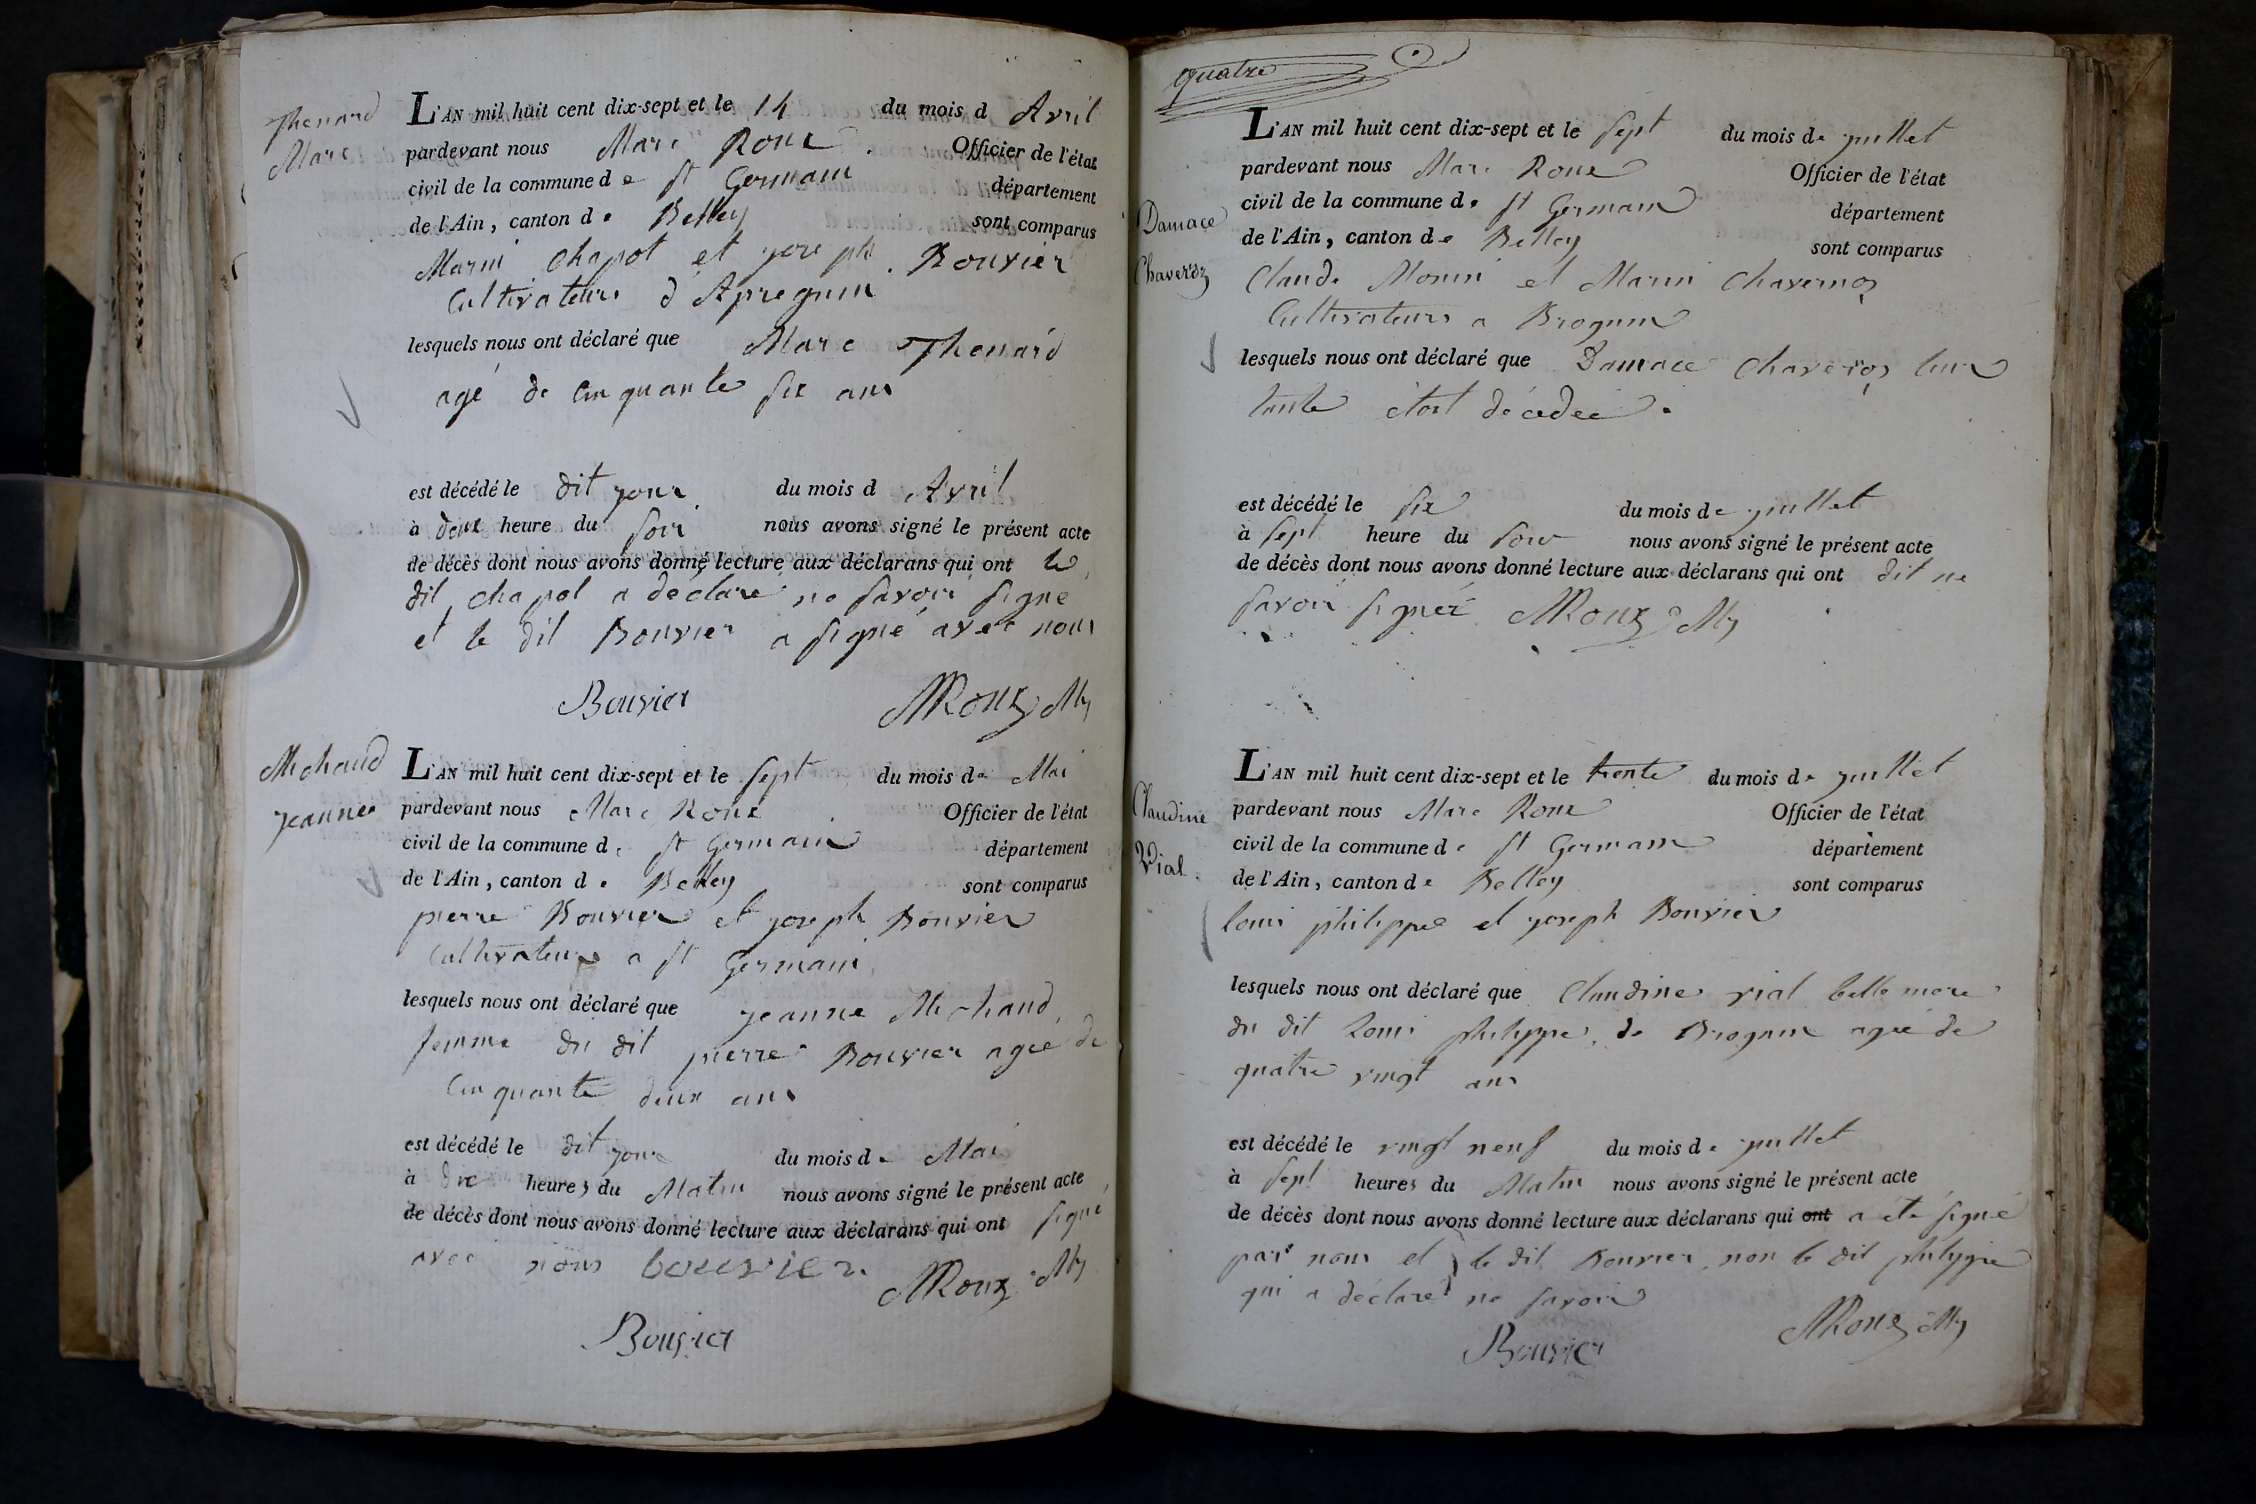 Thenard
Marc
L'AN mil huit cent dix-sept et le 14 du mois d Avril
pardevant nous Marc Roux Officier de l'état
civil de la commune de St Germain département
de l'Ain, canton de Belley sont comparus
Marin Chapot et joseph Bouvier
Cultivateurs d'Apregnin
lesquels nous ont déclaré que Marc Thenard
agé de cinquante six ans
est décédé le dit jour du mois d Avril
à deux heure du soir nous avons signé le présent acte
de décès dont nous avons donné lecture aux déclarans qui ont le
dit chapot a déclaré ne savoir signé
et le dit Bouvier a signé avec nous
Bouvier MRoux
Michaud
jeanne
L'AN mil huit cent dix-sept et le sept du mois de Mai
pardevant nous Marc Roux Officier de l'état
civil de la commune de St Germain département
de l'Ain, canton de Belley sont comparus
pierre Bouvier et joseph Bouvier
Cultivateurs a St Germain
lesquels nous ont déclaré que jeanne Michaud
femme du dit pierre Bouvier agée de
Cinquante deux ans
est décédé le dit jour du mois de Mai
à dix heures du Matin nous avons signé le présent acte
de décès dont nous avons donné lecture aux déclarans qui ont signé
avec nous bouvier MRoux
Bouvier
quatre
Damace
Chaveroz
L'AN mil huit cent dix-sept et le sept du mois de juillet
pardevant nous Marc Roux Officier de l'état
civil de la commune de St Germain département
de l'Ain, canton de Belley sont comparus
Claude Monin et Marin
Cultivateurs a Brognin
lesquels nous ont déclaré que Damace Chaveroz leur
tante étoit décédée.
est décédé le six du mois de juillet
à sept heure du soir nous avons signé le présent acte
de décès dont nous avons donné lecture aux déclarans qui ont dit ne
savoir signer MRoux
Claudine
Vial.
L'AN mil huit cent dix-sept et le trente du mois de juillet
pardevant nous Marc Roux Officier de l'état
civil de la commune de St Germain département
de l'Ain, canton de Belley sont comparus
louis philippe et joseph Bouvier
lesquels nous ont déclaré que Claudine vial belle mere
du dit Louis philippe, de Brognin agée de
quatre vingt ans
est décédé le vingt neuf du mois de juillet
à sept heures du Matin nous avons signé le présent acte
de décès dont nous avons donné lecture aux déclarans qui ont a été signé
par nous et le dit Bouvier, non le dit philippe
qui a déclaré ne savoir
Bouvier MRoux